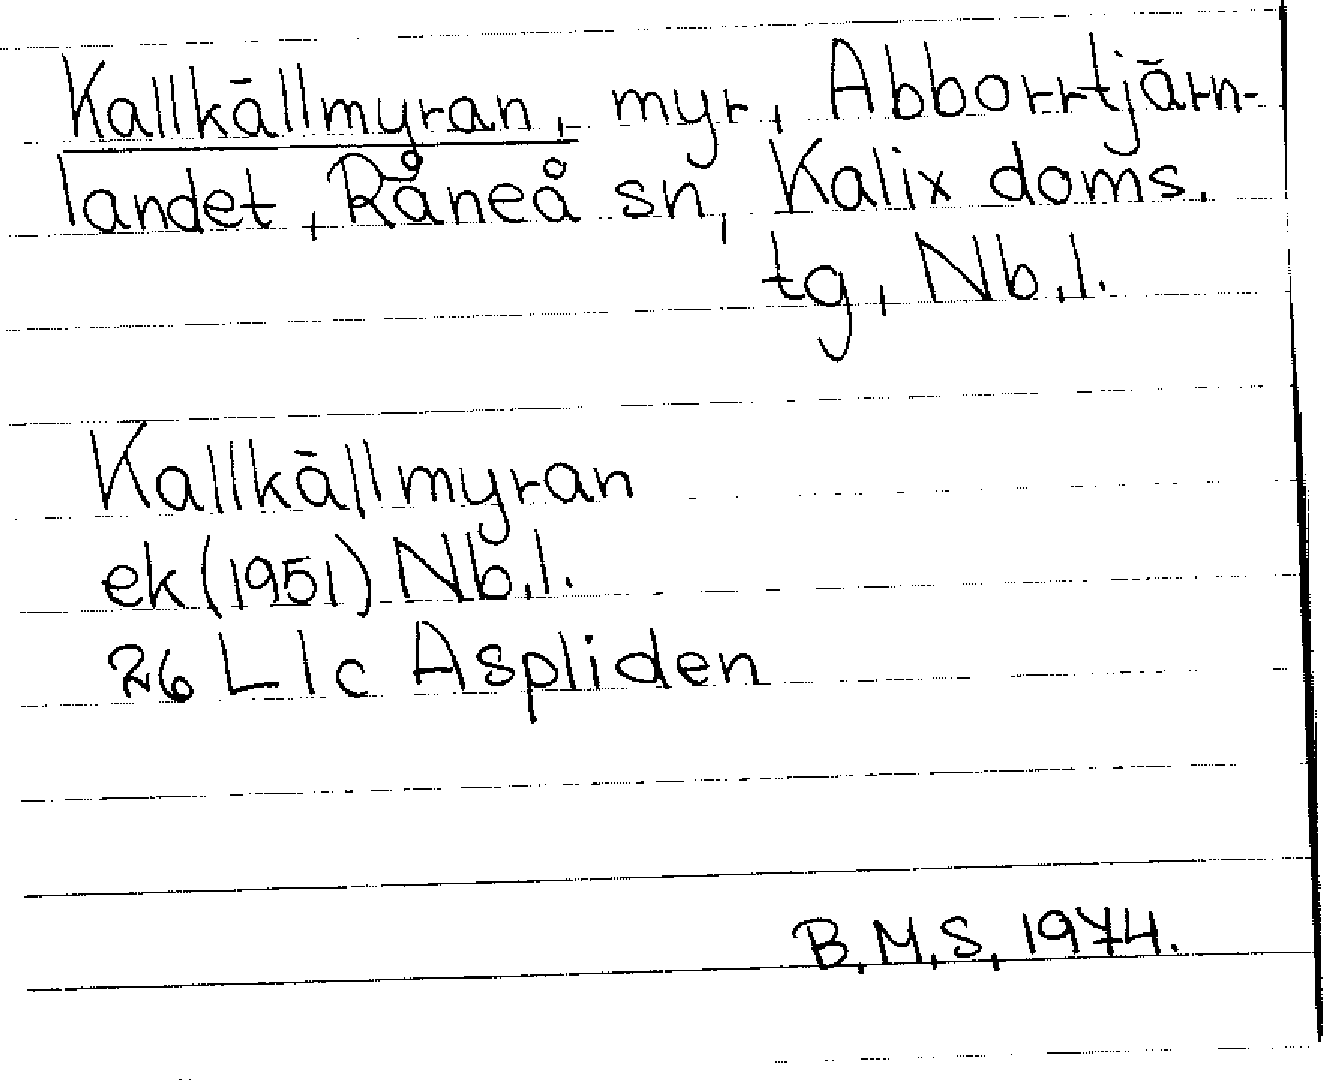 Kallkällmyran, myr, Abborrtjärn-
landet, Råneå sn, Kalix doms.
tg, Nb.l.
Kallkällmyran
ek (1951) Nb.l.
26 L1c Aspliden
B.M.S, 1974.